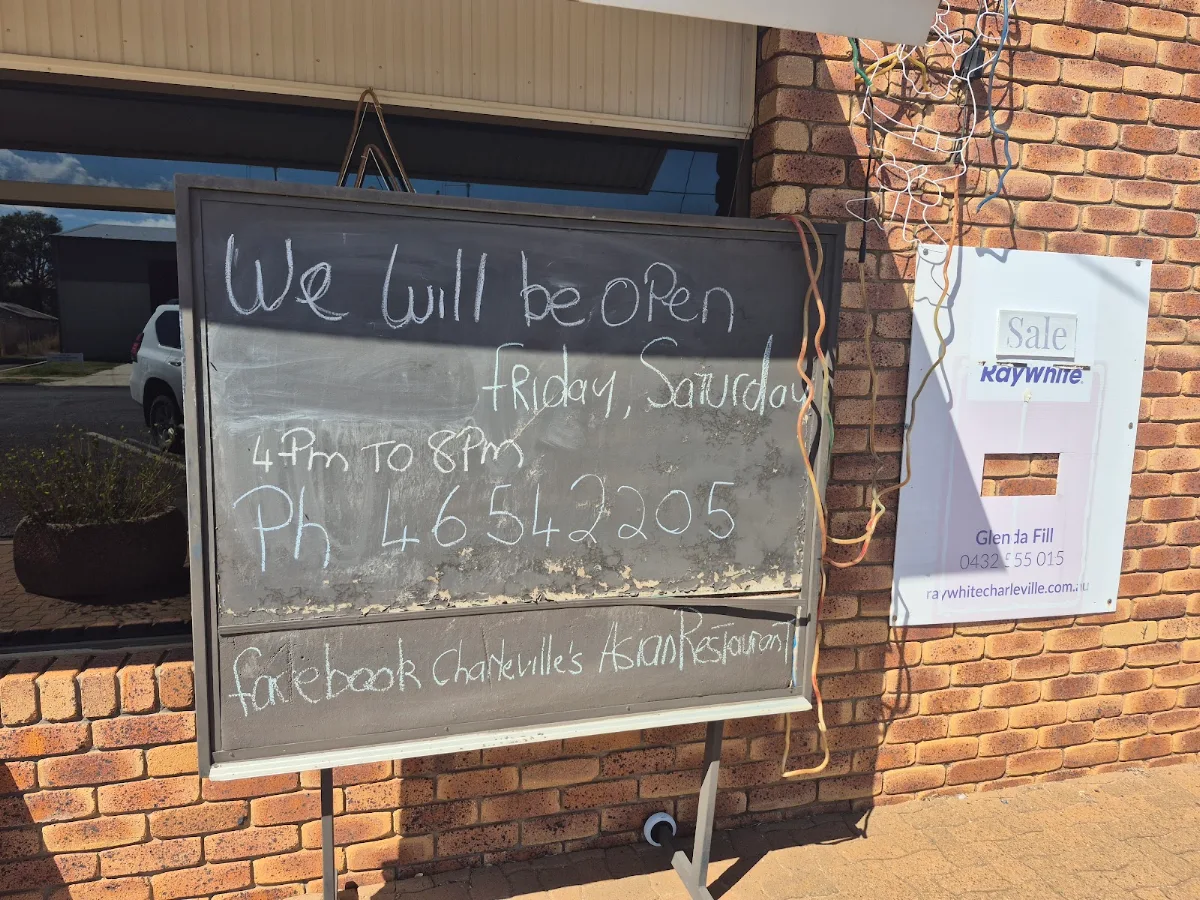 We will be open
friday, Saturday
4Pm TO 8Pm
Ph 46542205
facebook Charleville's Asian Restaurant
Sale
RayWhite.
Glenda Fill
0432 555 015
raywhitecharleville.com.au